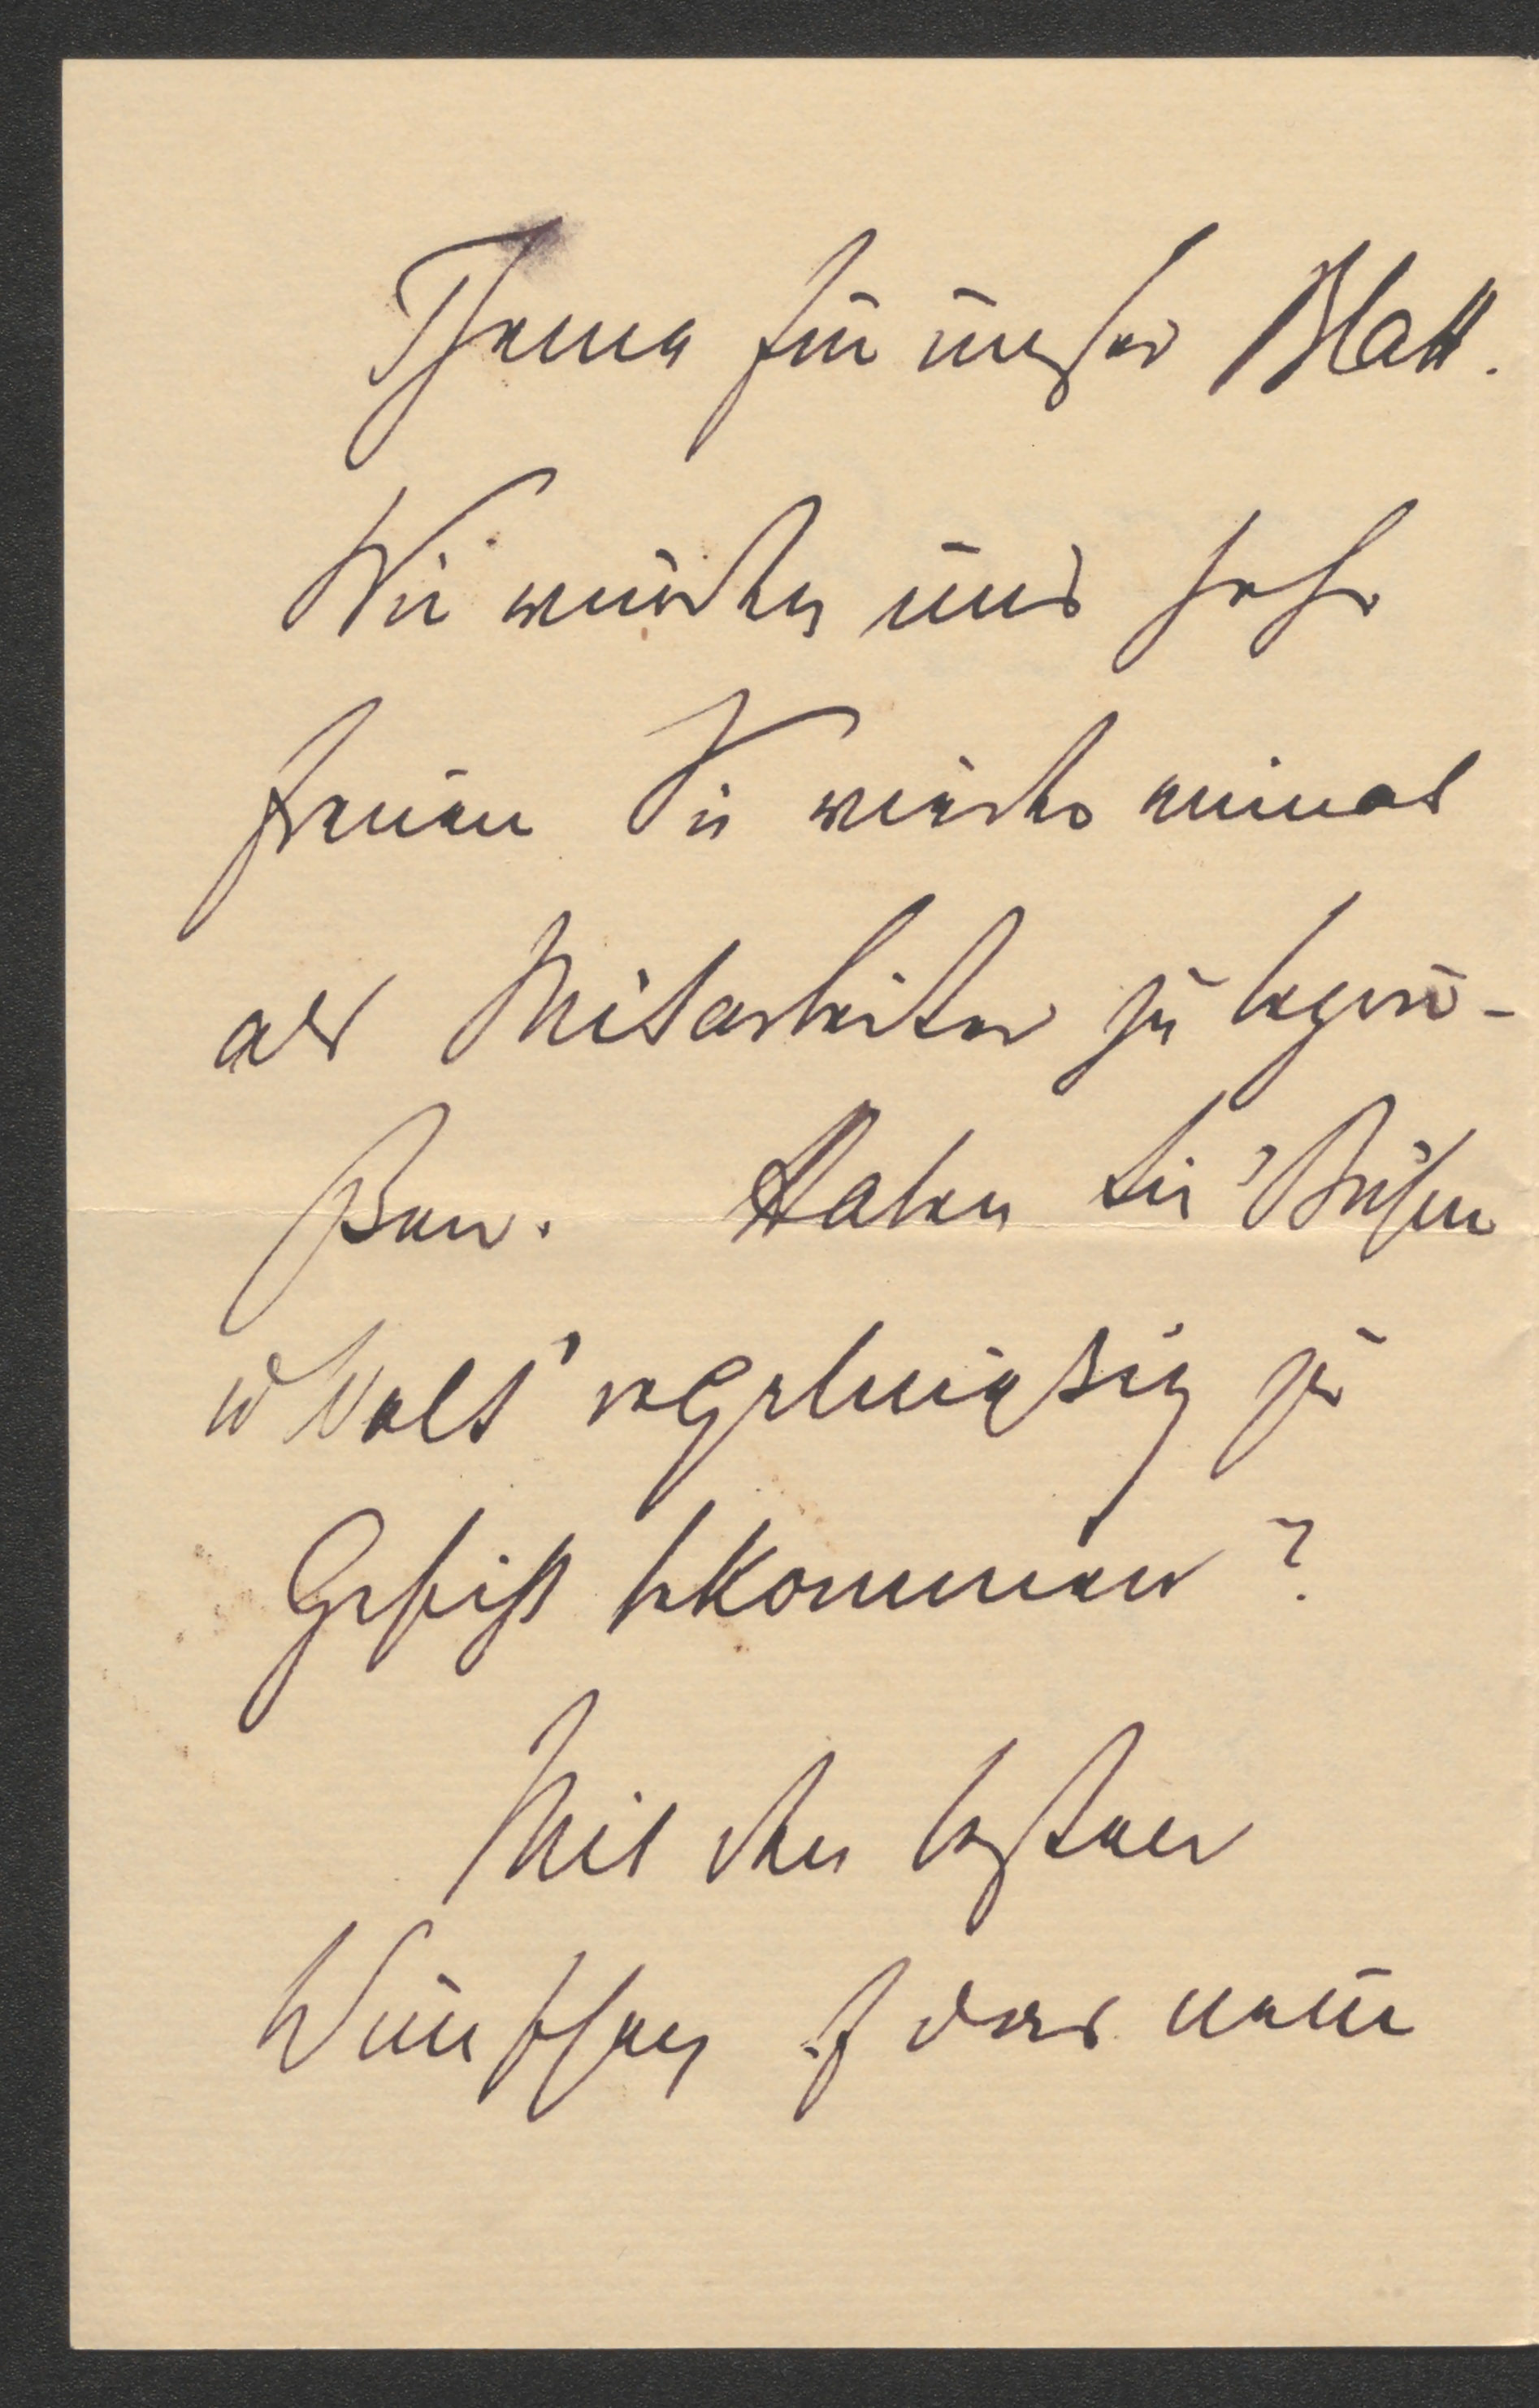 Thema für unser Blatt.
Wir würden uns sehr
freuen Sie wieder einmal
als Mitarbeiter zu begrü-
ßen. Haben Sie 'Bühne
u Welt' regelmäßig zu
Gesicht bekommen?
Mit den besten
Wünschen f das neue